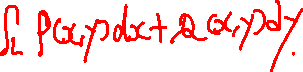 ∫_L P(x,y)dx+Q(x,y)dy